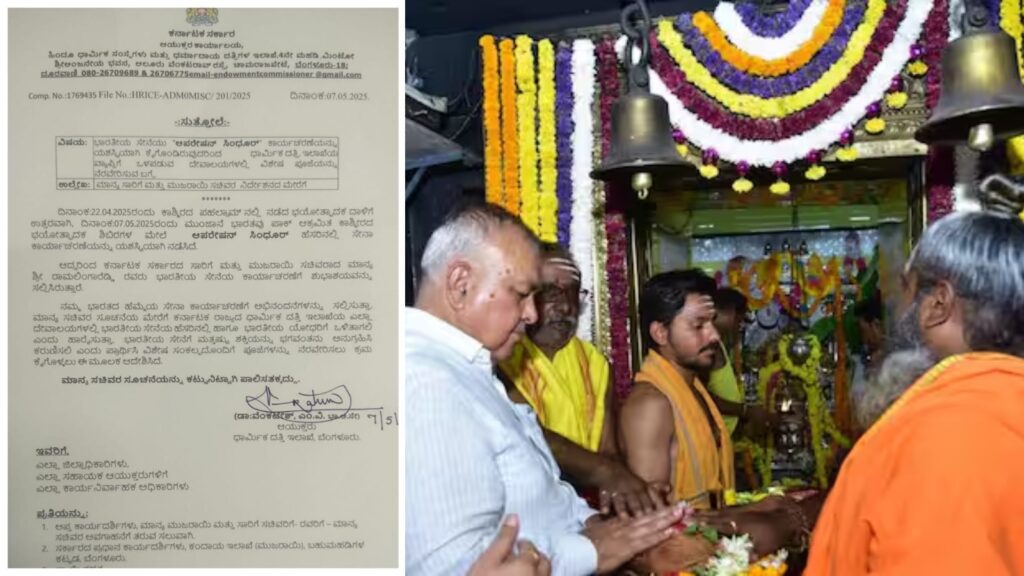 ಕರ್ನಾಟಕ ಸರ್ಕಾರ
ಆಯುಕ್ತರ ಕಾರ್ಯಾಲಯ,
ಹಿಂದೂ ಧಾರ್ಮಿಕ ಸಂಸ್ಥೆಗಳು ಮತ್ತು ಧರ್ಮಾದಾಯ ದತ್ತಿಗಳ ಇಲಾಖೆ,4ನೇ ಮಹಡಿ ಮಿಂಟೋ
ಶ್ರೀಆಂಜನೇಯ ಭವನ, ಆಲೂರು ವೆಂಕಟರಾವ್ ರಸ್ತೆ, ಚಾಮರಾಜಪೇಟೆ, ಬೆಂಗಳೂರು-18;
ದೂರವಾಣಿ 080-26709689 & 26706775email-endowmentcommissioner @gmail.com
Comp. No.:1769435 File No.:HRICE-ADM0MISC/ 201/2025 ದಿನಾಂಕ:07.05.2025.
-:ಸುತ್ತೋಲೆ:-
ವಿಷಯ: ಭಾರತೀಯ ಸೇನೆಯು 'ಆಪರೇಷನ್ ಸಿಂಧೂರ್' ಕಾರ್ಯಾಚರಣೆಯನ್ನು
ಯಶಸ್ವಿಯಾಗಿ ಕೈಗೊಂಡಿರುವುದರಿಂದ ಧಾರ್ಮಿಕ ದತ್ತಿ ಇಲಾಖೆಯ
ವ್ಯಾಪ್ತಿಗೆ ಒಳಪಡುವ ದೇವಾಲಯಗಳಲ್ಲಿ ವಿಶೇಷ ಪೂಜೆಯನ್ನು
ನೆರವೇರಿಸುವ ಬಗ್ಗೆ
ಉಲ್ಲೇಖ: ಮಾನ್ಯ ಸಾರಿಗೆ ಮತ್ತು ಮುಜರಾಯಿ ಸಚಿವರ ನಿರ್ದೇಶನದ ಮೇರೆಗೆ
*******
ದಿನಾಂಕ:22.04.2025ರಂದು ಕಾಶ್ಮೀರದ ಪಹಲ್ಗಾಮ್ ನಲ್ಲಿ ನಡೆದ ಭಯೋತ್ಪಾದಕ ದಾಳಿಗೆ
ಉತ್ತರವಾಗಿ, ದಿನಾಂಕ:07.05.2025ರಂದು ಮುಂಜಾನೆ ಭಾರತವು ಪಾಕ್ ಆಕ್ರಮಿತ ಕಾಶ್ಮೀರದ
ಭಯೋತ್ಪಾದಕ ಶಿಬಿರಗಳ ಮೇಲೆ ಆಪರೇಷನ್ ಸಿಂಧೂರ್ ಹೆಸರಿನಲ್ಲಿ ಸೇನಾ
ಕಾರ್ಯಾಚರಣೆಯನ್ನು ಯಶಸ್ವಿಯಾಗಿ ನಡೆಸಿದೆ.
ಆದ್ದರಿಂದ ಕರ್ನಾಟಕ ಸರ್ಕಾರದ ಸಾರಿಗೆ ಮತ್ತು ಮುಜರಾಯಿ ಸಚಿವರಾದ ಮಾನ್ಯ
ಶ್ರೀ ರಾಮಲಿಂಗಾರೆಡ್ಡಿ ರವರು ಭಾರತೀಯ ಸೇನೆಯ ಕಾರ್ಯಾಚರಣೆಗೆ ಶುಭಾಶಯವನ್ನು
ಸಲ್ಲಿಸಿರುತ್ತಾರೆ.
ನಮ್ಮ ಭಾರತದ ಹೆಮ್ಮೆಯ ಸೇನಾ ಕಾರ್ಯಾಚರಣೆಗೆ ಅಭಿನಂದನೆಗಳನ್ನು ಸಲ್ಲಿಸುತ್ತಾ,
ಮಾನ್ಯ ಸಚಿವರ ಸೂಚನೆಯ ಮೇರೆಗೆ ಕರ್ನಾಟಕ ರಾಜ್ಯದ ಧಾರ್ಮಿಕ ದತ್ತಿ ಇಲಾಖೆಯ ಎಲ್ಲಾ
ದೇವಾಲಯಗಳಲ್ಲಿ ಭಾರತೀಯ ಸೇನೆಯ ಹೆಸರಿನಲ್ಲಿ ಹಾಗೂ ಭಾರತೀಯ ಯೋಧರಿಗೆ ಒಳಿತಾಗಲಿ
ಎಂದು ಹಾರೈಸುತ್ತಾ, ಭಾರತೀಯ ಸೇನೆಗೆ ಮತ್ತಷ್ಟು ಶಕ್ತಿಯನ್ನು ಭಗವಂತನು ಅನುಗ್ರಹಿಸಿ
ಕರುಣಿಸಲಿ ಎಂದು ಪ್ರಾರ್ಥಿಸಿ ವಿಶೇಷ ಸಂಕಲ್ಪದೊಂದಿಗೆ ಪೂಜೆಗಳನ್ನು ನೆರವೇರಿಸಲು ಕ್ರಮ
ಕೈಗೊಳ್ಳಲು ಈ ಮೂಲಕ ಆದೇಶಿಸಿದೆ.
ಮಾನ್ಯ ಸಚಿವರ ಸೂಚನೆಯನ್ನು ಕಟ್ಟುನಿಟ್ಟಾಗಿ ಪಾಲಿಸತಕ್ಕದ್ದು.
7/5/
(ಡಾ:ವೆಂಕಟೇಶ್, ಎಂ.ವಿ. ಭಾ.ಆ.ಸೇ)
ಆಯುಕ್ತರು
ಧಾರ್ಮಿಕ ದತ್ತಿ ಇಲಾಖೆ, ಬೆಂಗಳೂರು.
ಇವರಿಗೆ.
ಎಲ್ಲಾ ಜಿಲ್ಲಾಧಿಕಾರಿಗಳು.
ಎಲ್ಲಾ ಸಹಾಯಕ ಆಯುಕ್ತರುಗಳಿಗೆ
ಎಲ್ಲಾ ಕಾರ್ಯನಿರ್ವಾಹಕ ಅಧಿಕಾರಿಗಳು
ಪ್ರತಿಯನ್ನು:
1. ಆಪ್ತ ಕಾರ್ಯದರ್ಶಿಗಳು, ಮಾನ್ಯ ಮುಜರಾಯಿ ಮತ್ತು ಸಾರಿಗೆ ಸಚಿವರಿಗೆ- ರವರಿಗೆ – ಮಾನ್ಯ
ಸಚಿವರ ಅವಗಾಹನೆಗೆ ತರುವ ಸಲುವಾಗಿ.
2. ಸರ್ಕಾರದ ಪ್ರಧಾನ ಕಾರ್ಯದರ್ಶಿಗಳು, ಕಂದಾಯ ಇಲಾಖೆ (ಮುಜರಾಯಿ), ಬಹುಮಹಡಿಗಳ
ಕಟ್ಟಡ, ಬೆಂಗಳೂರು.